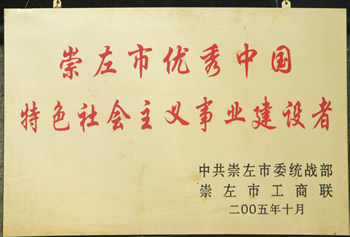 崇左市优秀中国
特色社会主义事业建设者
中共崇左市委统战部
崇左市工商联
二00五年十月